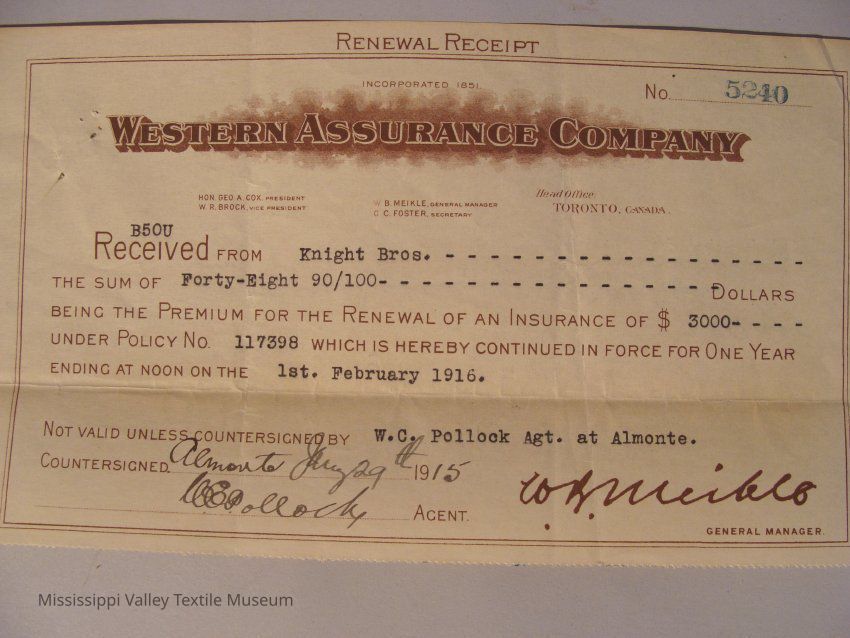 RENEWAL RECEIPT
INCORPORATED 1851.
No. 5240
WESTERN ASSURANCE COMPANY
HON. GEO. A. COX, PRESIDENT
W. R. BROCK, VICE PRESIDENT
W. B. MEIKLE, GENERAL MANAGER
C. C. FOSTER, SECRETARY
Head Office
TORONTO, CANADA.
B50U
RECEIVED FROM Knight Bros. - - - - - - - - - - - - - - - - - -
THE SUM OF Forty-Eight 90/100- - - - - - - - - - - - - - - - - DOLLARS
BEING THE PREMIUM FOR THE RENEWAL OF AN INSURANCE OF $ 3000- - - -
UNDER POLICY NO. 117398 WHICH IS HEREBY CONTINUED IN FORCE FOR ONE YEAR
ENDING AT NOON ON THE 1st. February 1916.
NOT VALID UNLESS COUNTERSIGNED BY W.C. Pollock Agt. at Almonte.
COUNTERSIGNED. Almonte Jany 29th 1915
WC Pollock AGENT.
W. B. Meikle
GENERAL MANAGER.
Mississippi Valley Textile Museum